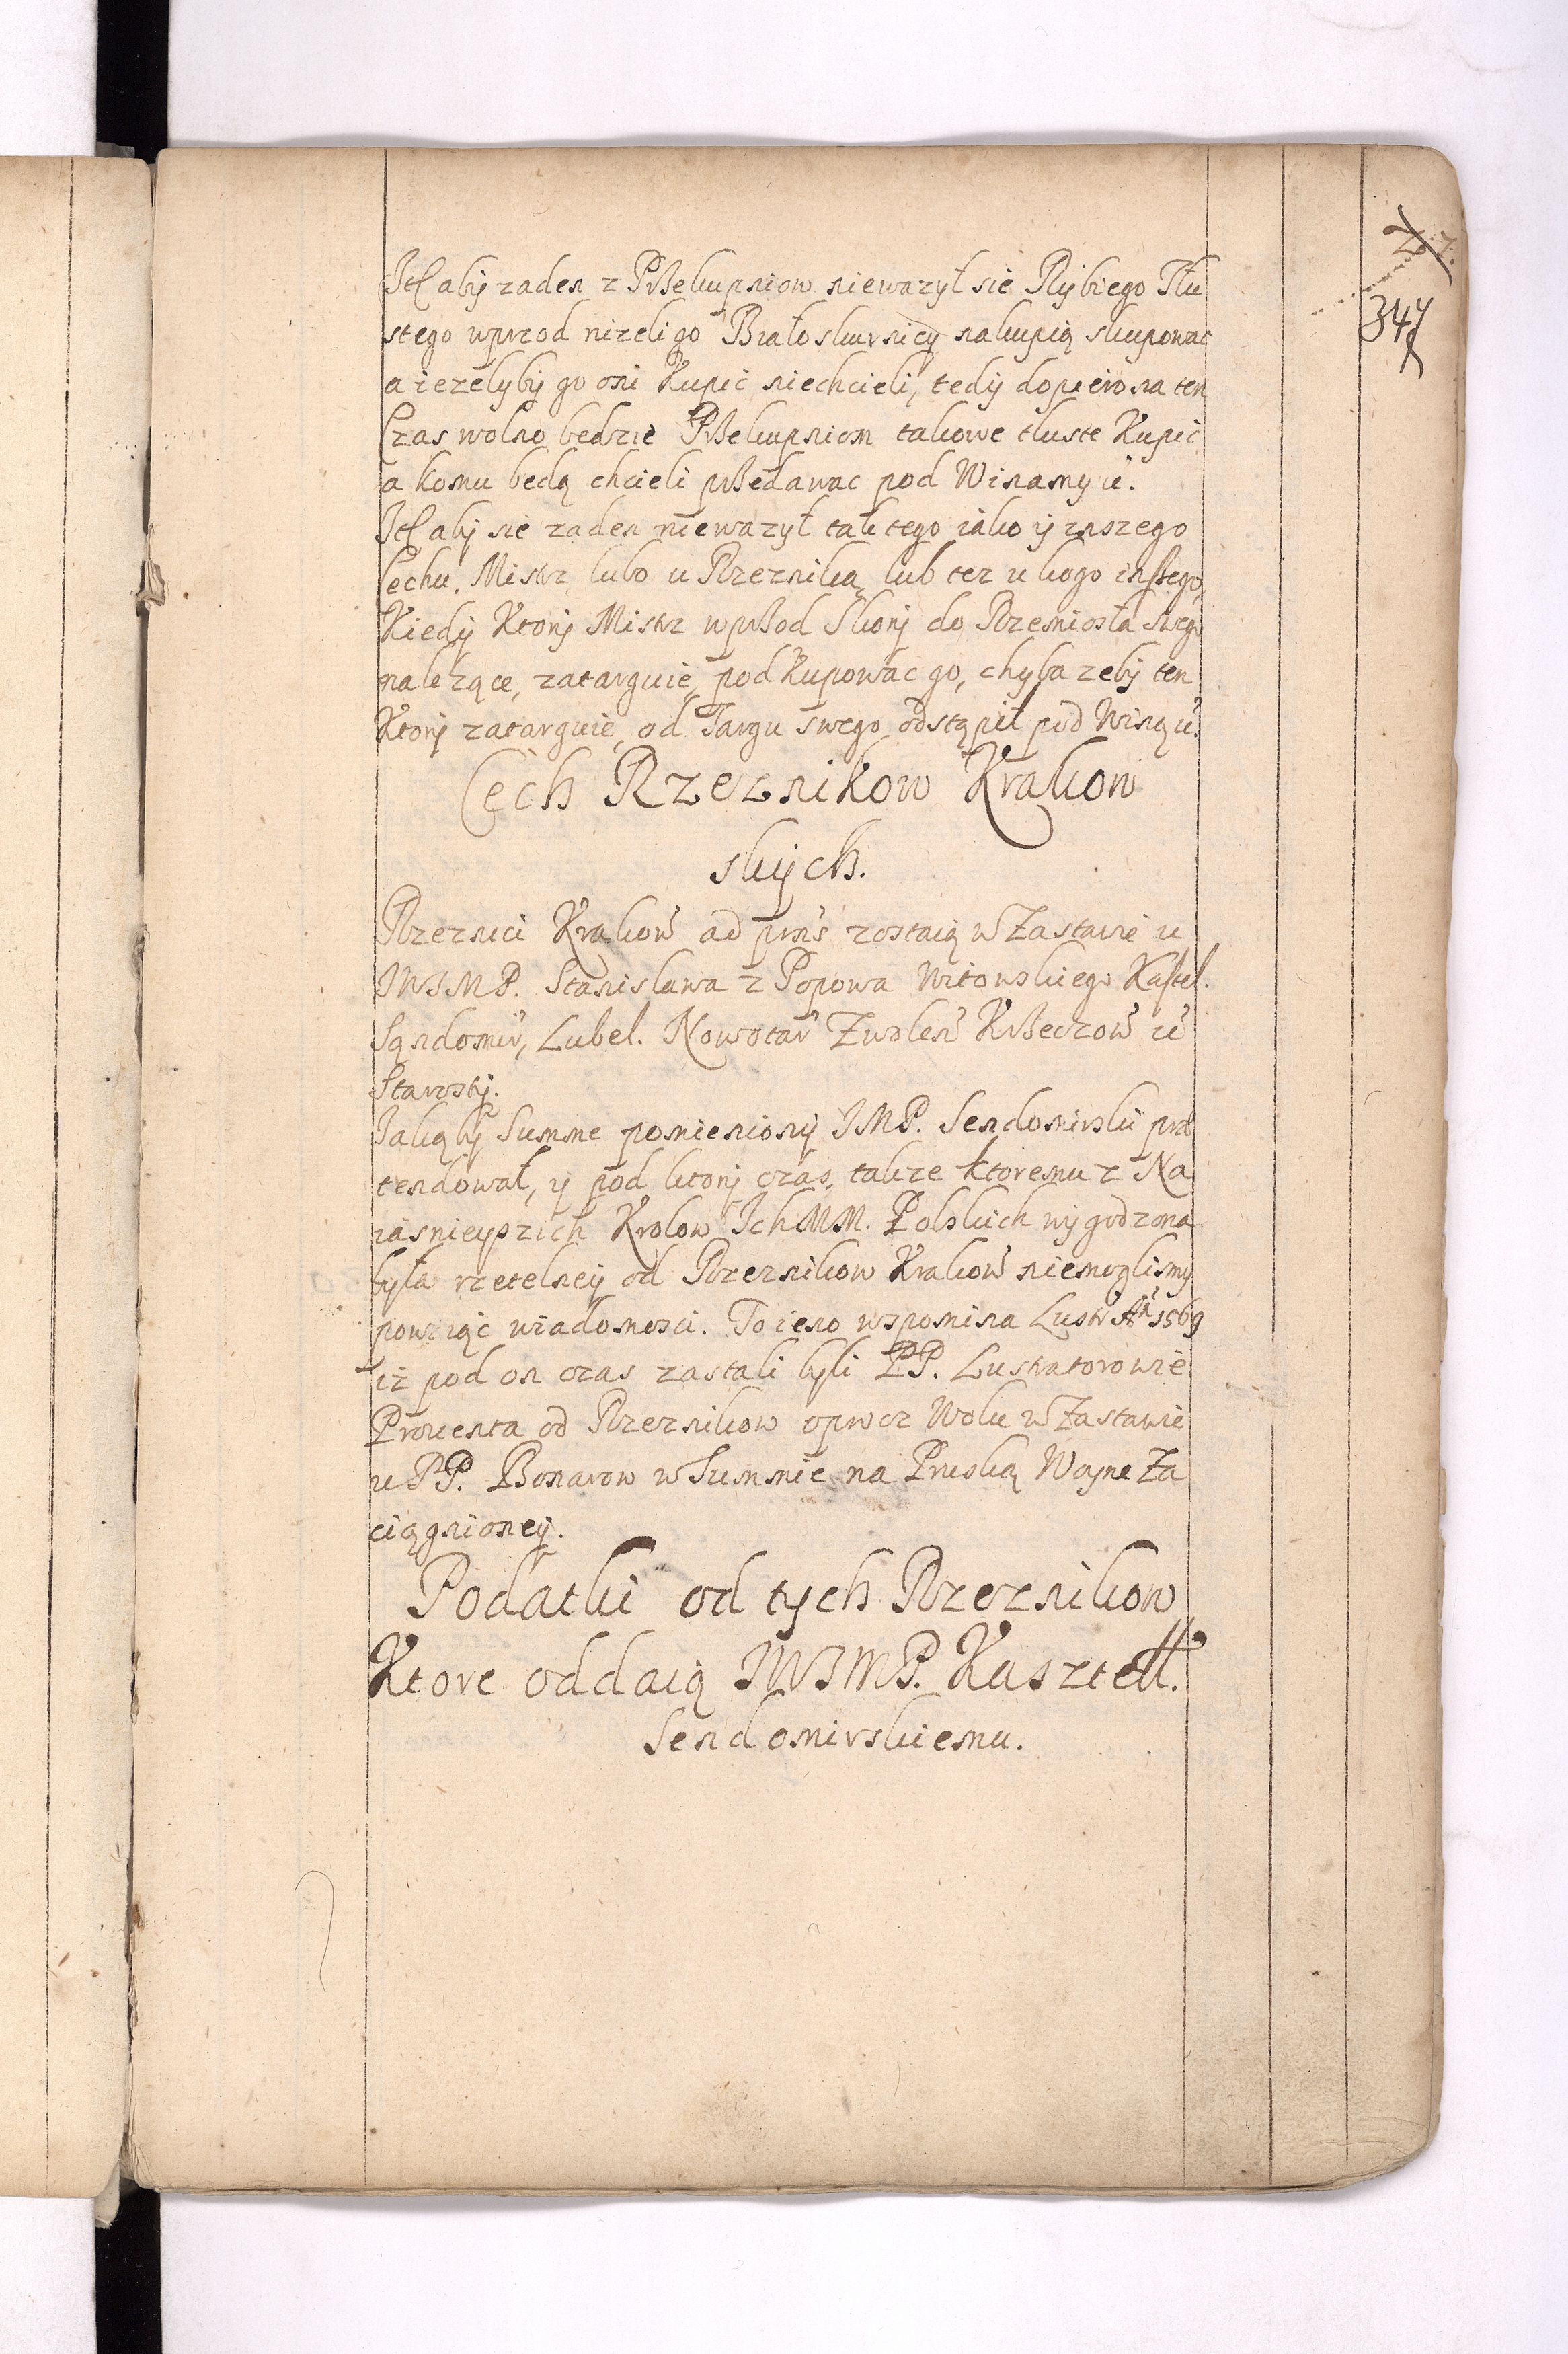 347
Itē aby zaden z Przekupniow niewazył sie Rybiego Tłu
stego wprzod nizeli go Białoskurnicy nakupią skupowac
a iezelyby go oni Kupic niechcieli, tedy dopiero na ten
Czas wolno będzie Przekupniom takowe tłuste Kupic
a komu będą chcieli przedawac pod Winamy ū.
Itē aby sie zaden niewazył tak tego iako y inszego
Cechu, Mistrz lubo u Rzeznika, lub tez u kogo inszego,
Kiedy Ktory Mistrz wprzod Skory do Rzemiosła swego
nalezące, zatarguie, podkupowac go, chyba zeby ten
Ktory zatarguie, od Targu swego odstąpił pod Winą ū.
Cech Rzeznikow Krakow
skych.
Rzeznici Krakow ad prns zostaią w Zastawie u
JWJMP. Stanisława z Popowa Witowskiego Kasztel.
Sąndomir, Lubel. Nowotar Zwolen Krzeczow ū
Starosty.
Jakąby Summe pomieniony JMP. Sendomirski prae
tendował, y pod ktory czas, takze ktoremu z Na
iasnieyszich Krolow Ich MM. Polskich wygodzona
była rzetelney od Rzeznikow Krakow niemoglismy
powziąc wiadomosci. To ieno wspomina Lustr An 1569
iz pod on czas zastali byli PP. Lustratorowie
Prowenta od Rzeznikow oprocz Wolu w Zastawie
u PP. Bonarow w Summie na Pruską Woyne Za
ciągnioney.
Podatki od tych Rzeznikow
Ktore oddaią JWJMP. Kasztell.
Sendomirskiemu.